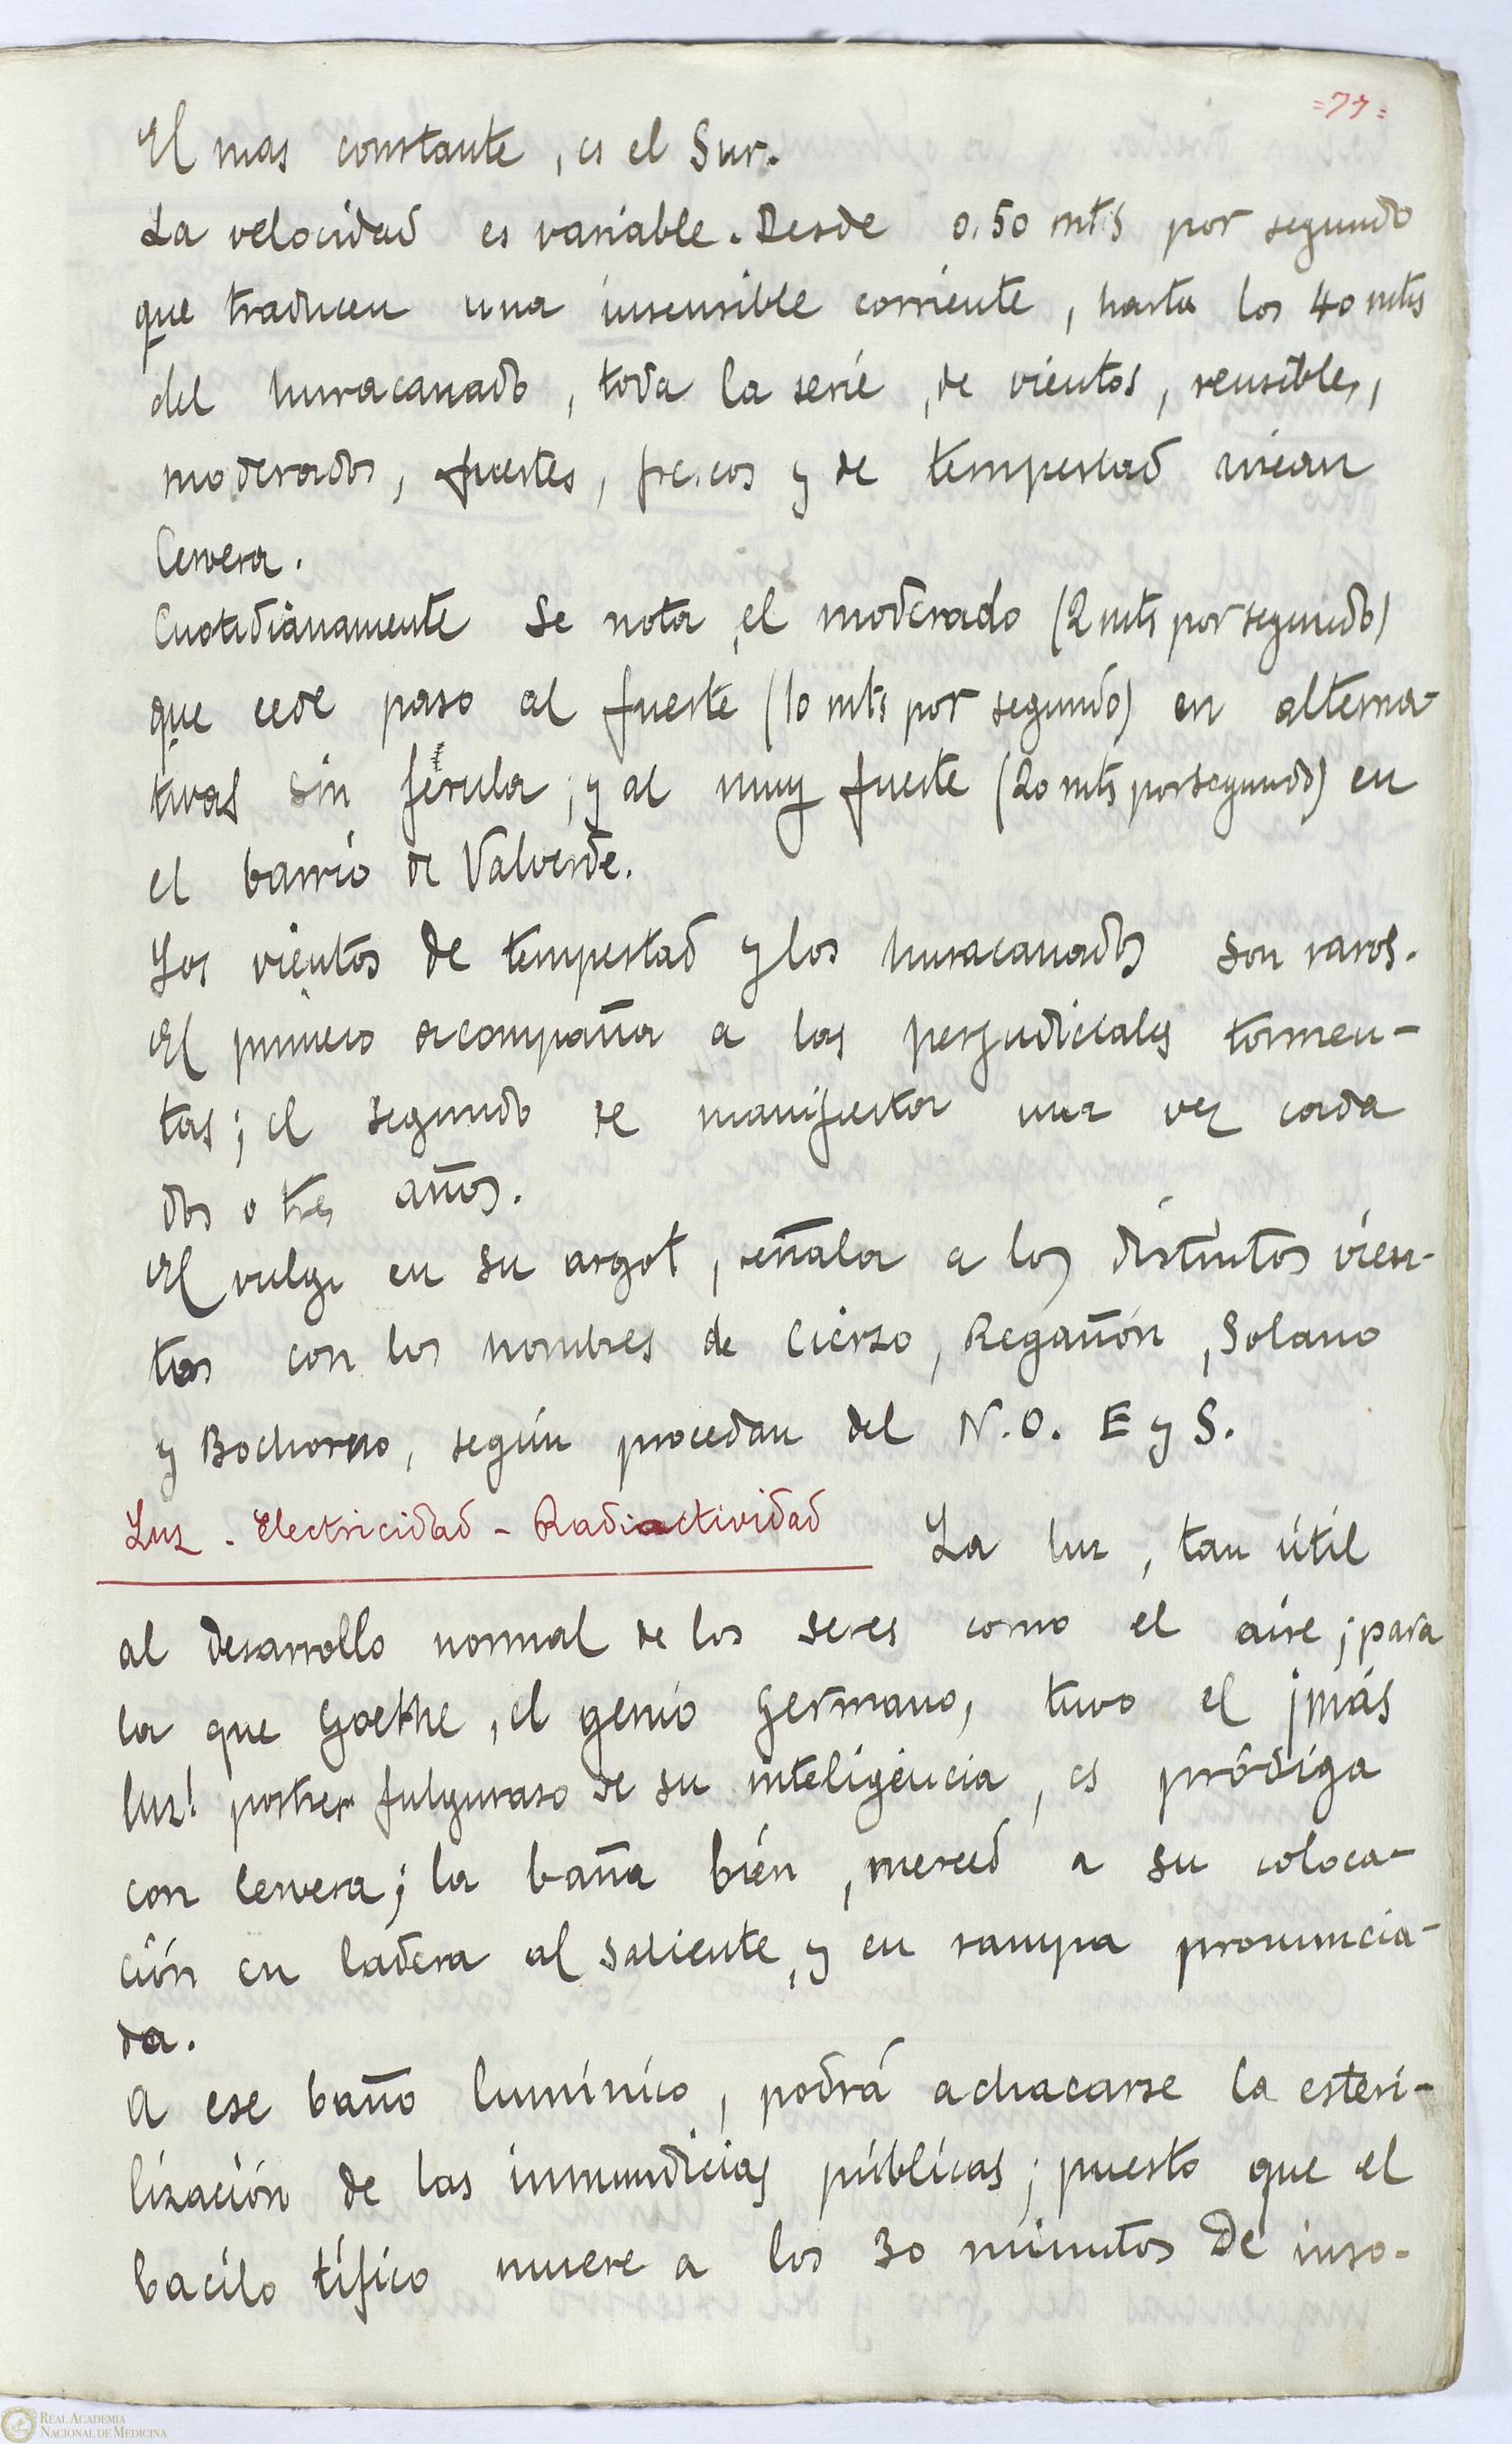 =77=
El mas constante, es el Sur.
La velocidad es variable. Desde 0.50 mts por segundo
que traducen una insensible corriente, hasta los 40 mts
del huracanado, toda la serie, de vientos, sensibles,
moderados, fuertes, frescos y de tempestad airean
Cervera.
Cuotidianamente se nota, el moderado (2 mts por segundo)
que cede paso al fuerte (10 mts por segundo) en alterna-
tivas sin férula; y al muy fuerte (20 mts por segundo) en
el barrio de Valverde.
Los vientos de tempestad y los huracanados son raros.
El primero acompaña a las perjudiciales tormen-
tas; el segundo se manifiesta una vez cada
dos o tres años.
El vulgo en su argot, señala a los distintos vien-
tos con los nombres de Cierzo, Regañón, Solano
y Bochorno, según procedan del N.O. E y S.
Luz - Electricidad - Radioactividad La luz, tan útil
al desarrollo normal de los seres como el aire; para
la que Goethe, el genio germano, tuvo el ¡más
luz! postrer fulguraso de su inteligencia, es pródiga
con Cervera; la baña bién, merced a su coloca-
ción en ladera al saliente, y en rampa pronuncia-
da.
A ese baño lumínico, podrá achacarse la esteri-
lización de las inmundicias públicas; puesto que el
bacilo tífico muere a los 30 minutos de inso-
REAL ACADEMIA
NACIONAL DE MEDICINA